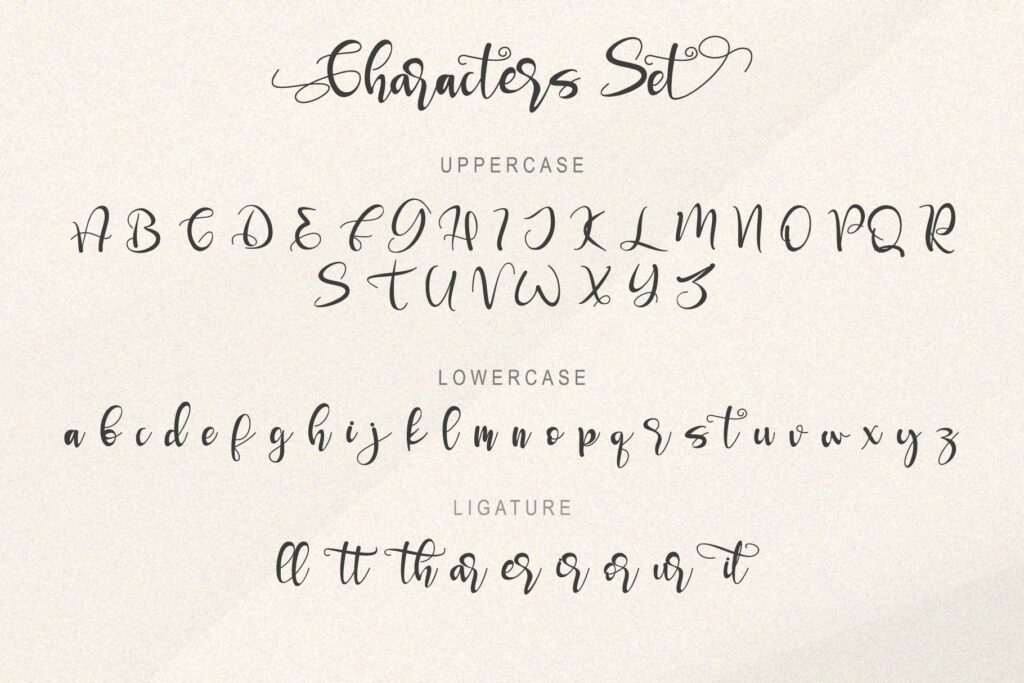 Characters Set
UPPERCASE
A B C D E F G H I J K L M N O P Q R
S T U V W X Y Z
LOWERCASE
a b c d e f g h i j k l m n o p q r s t u v w x y z
LIGATURE
ll tt th ar er ir or ur it